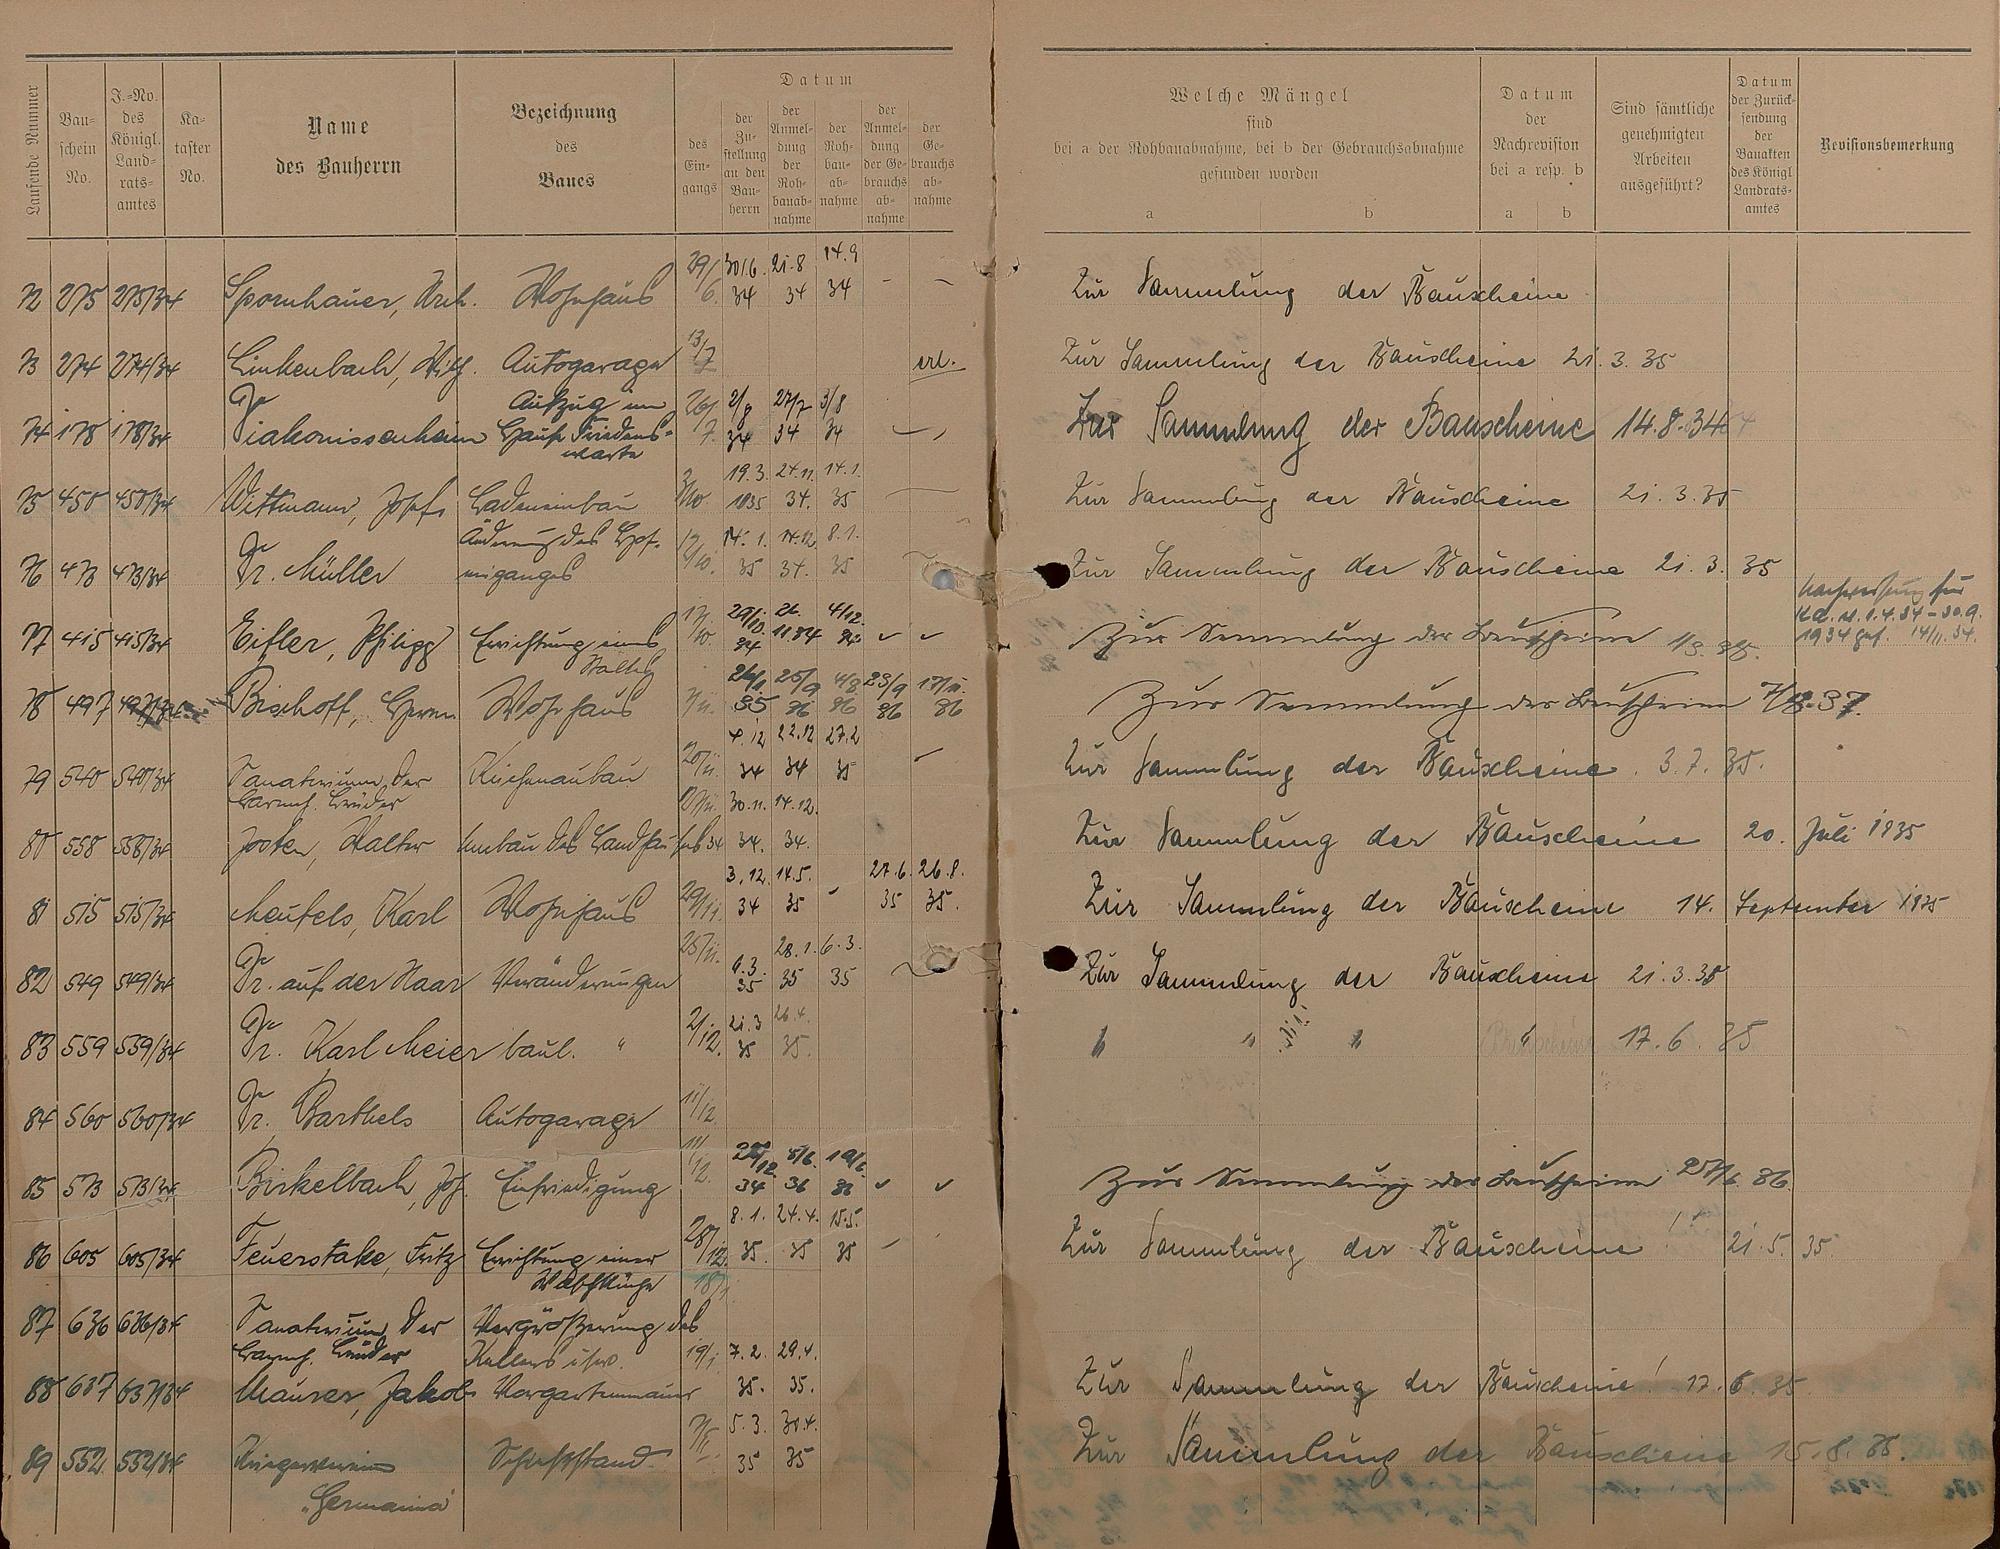 Laufende Nummer
Bau-
schein
No.
J.-No.
des
Königl.
Land-
rats-
amtes
Ka-
taster
No.
Name
des Bauherrn
Bezeichnung
des
Baues
Datum
des
Ein-
gangs
der
Zu-
stellung
an den
Bau-
herrn
der
Anmel-
dung
der
Roh-
bauab-
nahme
der
Roh-
bau-
ab-
nahme
der
Anmel-
dung
der Ge-
brauchs-
ab-
nahme
der
Ge-
brauchs
ab-
nahme
Welche Mängel
sind
bei a der Rohbauabnahme, bei b der Gebrauchsabnahme
gefunden worden
a b
Datum
der
Nachrevision
bei a resp. b
a b
Sind sämtliche
genehmigten
Arbeiten
ausgeführt?
Datum
der Zurück-
sendung
der
Bauakten
des Königl
Landrats-
amtes
Revisionsbemerkung
29/ 30/6. 21.8 14.9
72 275 275/34 Spornhauer, Wohnhaus 6. 34 34 34 - - Zur Sammlung der Bauscheine
73 274 274/34 Linkenbach, Wilh. Autogarage 13/7 erl. Zur Sammlung der Bauscheine 21.3.35
Aufzug im 26/ 2/8 27/7 3/8
74 178 178/34 Diakonissenheim Hause Friedens- 7. 34 34 34 Zur Sammlung der Bauscheine 14.8.34
warte
19.3. 24.11. 14.1.
75 450 450/34 Wittmann, Josef Ladeneinbau 1935 34. 35 Zur Sammlung der Bauscheine 21.3.35
Änderung des Hof- 14.1. 14.12. 8.1.
76 473 473/34 Dr. Müller einganges 35 34. 35 Zur Sammlung der Bauscheine 21.3.35
77 415 415/34 Eifler, Philipp Errichtung eines Zur Sammlung der Bauscheine
Stalles
1934 gef. 14/11.34.
25/9 4/8 23/9 17/11.
78 497 Bischoff, Herm Wohnhaus 35 36 36 36 36 Zur Sammlung der Bauscheine
4.12 22.12 27.2
79 540 540/34 Sanatorium der Küchenanbau 20/11. 34 34 35 Zur Sammlung der Bauscheine. 3.7.35.
Barmh. Brüder 30.11. 14.12.
80 558 558/34 Josten, Walter Umbau des Landhauses 34 34. 34. Zur Sammlung der Bauscheine 20. Juli 1935
3.12. 14.5. 27.6. 26.8.
81 515 515/34 Meufels, Karl Wohnhaus 29/11. 34 35 35 35. Zur Sammlung der Bauscheine 14. September 1935
28.1. 6.3.
82 549 549/34 Dr. auf der Haar Veränderungen 35 35 35 Zur Sammlung der Bauscheine 21.3.35
21.3 26.4.
83 559 559/34 Dr. Karl Meier baul. " 2/12. 35 35. " " " " 17.6.35
84 560 560/34 Dr. Barthels Autogarage 11/12
85 573 573/34 Birkelbach, Jos. Einfriedigung 34 36 36 Zur Sammlung der Bauscheine
8.1. 24.4. 15.5.
86 605 605/34 Feuerstake, Fritz Errichtung einer 28/12. 35. 35 35 Zur Sammlung der Bauscheine! 21.5.35
Waschküche 18/1
87 636 636/34 Sanatorium der Vergrößerung des
Barmh. Brüder Kellers usw. 19/1 7.2. 29.4.
88 637 637/34 Maurer, Jakob Vorgartenmauer 35. 35. Zur Sammlung der Bauscheine! 17.6.35
5.3. 30.4.
89 552 552/34 Kriegerverein Schießstand 35 35 Zur Sammlung der Bauscheine 15.8.35.
"Germania"